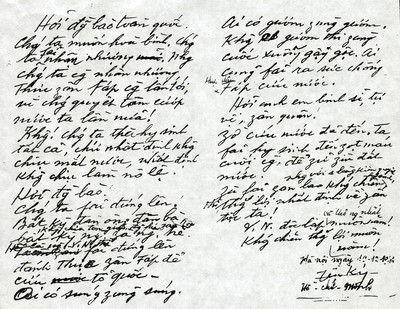 Hỡi đồng bào toàn quốc.
Chúng ta muốn hoà bình, chúng
ta fải nhân nhượng. Nhưng
chúng ta càng nhân nhượng
thực zân Fáp càng lấn tới,
vì chúng quyết tâm cướp
nước ta lần nữa!
Không! Chúng ta thà hy sinh
tất cả, chứ nhất định không
chịu mất nước, nhất định
không chịu làm nô lệ.
Hỡi đồng bào.
Chúng ta fải đứng lên.
Bất kỳ đàn ông đàn bà,
fải đứng lên
đánh Thực zân Fáp để
cứu tổ quốc –
Ai có súng zùng súng.
Ai có gươm zùng gươm,
Không có gươm thì zùng
cuốc xuổng gậy gộc. Ai
cũng fải ra sức chống
Fáp cứu nước.
Hỡi anh em binh sĩ, tự
vệ, zân quân.
Zờ cứu nước đã đến, ta
fải hy sinh đến zọt máu
cuối cùng, để zữ zìn đất
nước.
Zù fải zan lao kháng chiến,
thắng lợi nhất định về zân
tộc ta!
V.N. độc lập và thống nhất muôn năm!
Kháng chiến thắng lợi muôn
năm!
Hà nội ngày
Hồ-chí-Minh